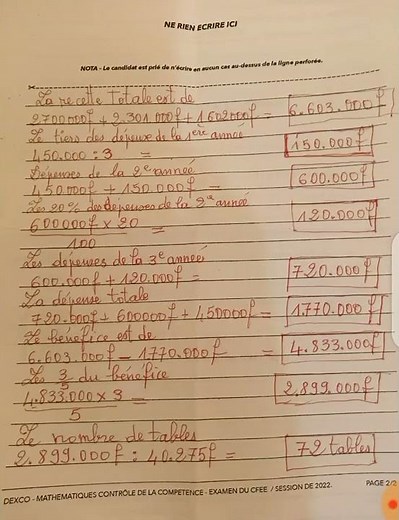 NE RIEN ECRIRE ICI
NOTA - Le candidat est prié de n'écrire en aucun cas au-dessus de la ligne perforée.
La recette Totale est de
2700000f + 2.301.000f + 1602000f = 6.603.000f
Le tiers des dépense de la 1ère année
450.000 : 3 = 150.000f
Dépenses de la 2e année
450.000f + 150.000f = 600.000f
Les 20% des depenses de la 2e année
600000f x 20 = 120.000f
100
Les dépenses de la 3e année
600.000f + 120.000f = 720.000f
La dépense totale
720.000f + 600000f + 450000f = 1.770.000f
Le bénéfice est de
6.603.000f - 1770.000f = 4.833.000f
Les 3/5 du bénéfice
4.833.000 x 3 = 2.899.000f
5
Le nombre de tables
2.899.000f : 40.275f = 72 tables
DEXCO - MATHEMATIQUES CONTRÔLE DE LA COMPETENCE - EXAMEN DU CFEE / SESSION DE 2022. PAGE 2/2